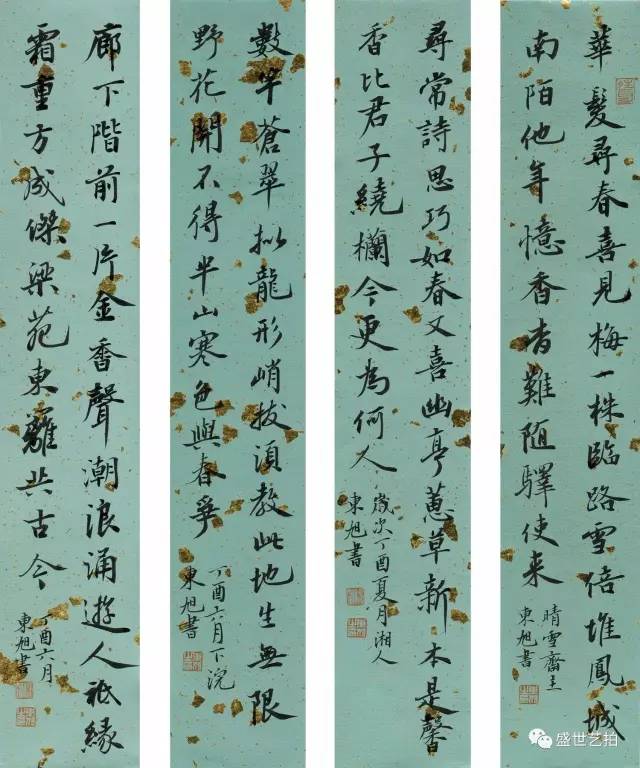 華髮尋春喜見梅一株臨路雪倍堆鳳城
南陌他年憶香杳難随驛使来
晴雪齋主
東旭書
尋常詩思巧如春又喜幽亭蕙草新本是馨
香比君子繞欄今更為何人
歲次丁酉夏月湘人
東旭書
數竿蒼翠拟龍形峭拔須教此地生無限
野花開不得半山寒色與春爭
丁酉六月下浣
東旭書
廊下階前一片金香聲潮浪涌遊人祗緣
霜重方成傑梁苑東籬共古今
丁酉六月
東旭書
盛世艺拍